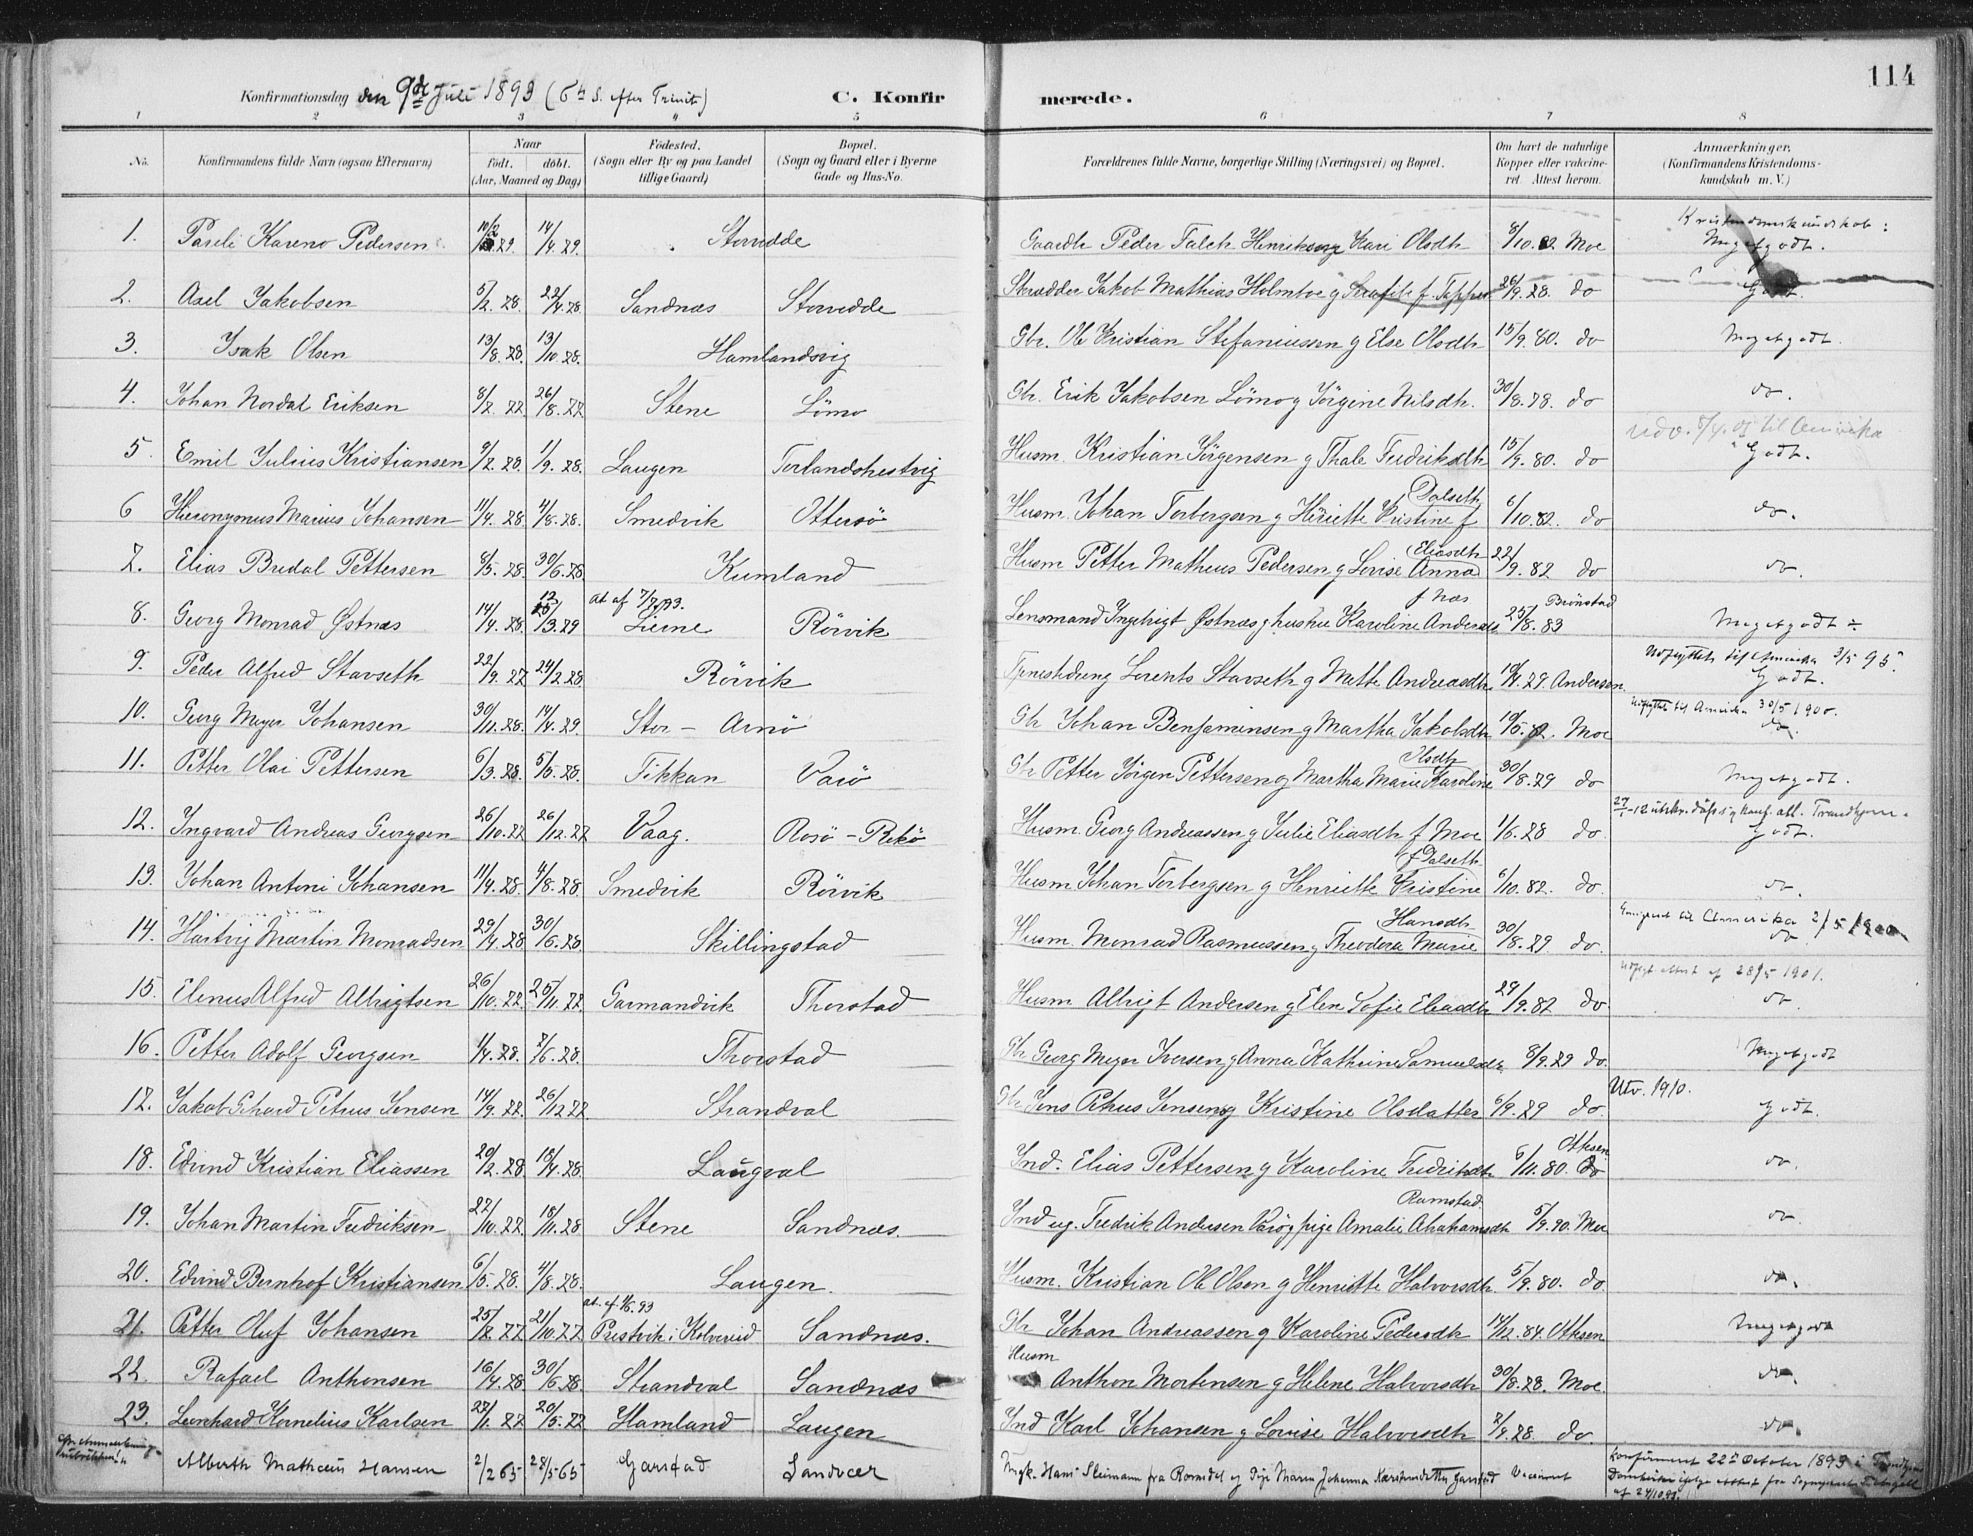 114
Konfirmationsdag den 9de Juli 1893 (6te S. efter Trinit.) C. Konfir merede.
1 2 3 4 5 6 7 8
No. Konfirmandens fulde Navn (ogsaa Efternavn) Naar født. døbt. (Aar, Maaned og Dag) Fødested. (Sogn eller By og paa Landet tillige Gaard) Bopæl. (Sogn og Gaard eller i Byerne Gade og Hus-No. Forældrenes fulde Navne, borgerlige Stilling (Næringsvei) og Bopæl. Om havt de naturlige Kopper eller vakcineret. Attest herom. Anmærkninger. (Konfirmandens Kristendomskundskab m. V.)
Kristendomskundskab:
1. Pareli Kareno Pedersen 10/2 79. 14/4 79. Storredde Gaardbr Peder Falch Henriksen g Kari Olsdtr 8/10. 82 Moe Megetgodt.
2. Axel Jakobsen 5/2. 78. 22/4. 78. Sandnæs Storredde Skrædder Jakob Mathias Holmboe g Serafile f. Topper 26/9. 78. do Godt.
3. Isak Olsen 13/8. 78. 13/10. 78. Hamlandsvig Gbr. Ole Kristian Stefaniussen g Else Olsdtr 15/9. 80. do Megetgodt.
4. Johan Nordal Eriksen 8/7. 77 26/8. 77 Stene Lömo Gbr. Erik Jakobsen Lömo g Jörgine Nilsdtr. 30/8. 78. do do.
Udv. 5/4. 01 til Amerika
5. Emil Julius Kristiansen 9/7. 78. 1/9. 78. Laugen Torlandshestvig Husm. Kristian Jörgensen g Thale Fredriksdtr 15/9. 80. do Godt.
6 Hieronymus Marius Johansen 11/4. 78. 4/8. 78. Smedvik Ottersö Husm. Johan Torbergsen g Henriette Kristine f Dalseth 6/10. 82. do do.
7. Elias Bredal Pettersen 8/5. 78. 30/6. 78 Kumland Husm Petter Matheus Pedersen g Lovise Anna Eliasdtr 22/9. 82 do do.
at af 7/7 93.
8. Georg Monrad Østnæs 14/4. 78. 12/3. 79 Lierne Rörvik Lensmand Ingebrigt Østnæs g hustru Karoline Anderdtr f Næs 25/8. 83 Brönstad Megetgodt ÷
Udflyttet til Amerika 3/5 95.
9. Peder Alfred Stavseth 22/9. 77 24/2. 78 Rörvik Tjenestedreng Lorents Stavseth g Mette Andreasdtr 10/4. 79. Andersen. Godt.
Udflyttet til Amerika 30/5 1900.
10. Georg Meyer Johansen 30/11. 78. 14/4. 79 Stor - Arnö Gbr Johan Benjaminsen g Martha Jakobsdtr 10/5. 82. Moe do.
11. Petter Olai Pettersen 6/3. 78. 5/5. 78. Tikkan Varö Gbr Petter Jörgen Pettersen og Martha Marie Karoline Olsdtr 30/8. 79 do Megetgodt.
27/-12 utskr. dåps og konf. att. Trondhjem.
12. Ingvard Andreas Georgsen 26/10. 77 26/12. 77 Vaag. Rosö - Rekö Husm. Georg Andreassen g Julie Eliasdtr f Moe 1/6. 78 do. Godt.
13. Johan Antoni Johansen 11/4. 78. 4/8. 78. Smedvik Rörvik Husm Johan Torbergsen g Henriette Kristine f Dalseth 6/10. 82. do. do.
Emigreret til Amerika 2/5 1900
14. Hartvig Martin Monradsen 29/4. 78. 30/6. 78 Skillingstad Husm. Monrad Rasmussen g Theodora Marie Hansdtr 30/8. 79. do. do
Udflyt attest af 28/5 1901.
15. Elenus Alfred Albrigtsen 26/10. 77. 25/11. 77 Garmandvik Thorstad Husm Albrigt Andersen g Elen Sofie Eliasdtr 29/9. 87 do. do.
16. Petter Adolf Georgsen 1/4. 78. 7/6. 78. Thorstad Gbr Georg Meyer Iversen g Anna Kathrine Samuelsdtr 8/9. 79 do. Megetgodt
Utv. 1910.
17. Jakob Gerhard Petrus Jensen 14/9. 77. 26/12 77 Strandval Gbr Jens Petrus Jensen g Kristine Olsdatter 6/9. 79 do. Godt.
18. Edvind Kristian Eliassen 20/2. 78 18/4. 78. Laugval Ind. Elias Pettersen g Karoline Fredriksdtr 6/11. 80. Otksen do.
19. Johan Martin Fredriksen 27/10. 77. 18/11. 78 Stene Sandnæs. Ind ug. Fredrik Andersen Varö g pige Amalie Abrahamsdtr Ramstad 5/9. 90. Moe do.
20. Edvind Bernhof Kristiansen 6/5. 78. 4/8. 78. Laugen. Husm. Kristian Ole Olsen g Henriette Halvorsdtr 5/9. 80. do. do.
at. af. 1/6. 93
21. Petter Oluf Johansen 25/8. 77. 21/10. 77 Prestvik i Kolvereid Sandnæs. Gbr Johan Andreassen g Karoline Pedersdtr 14/12. 84. Otksen Megetgodt
22. Rafael Anthonsen 16/4. 78. 30/6. 78. Strandval Sandnæs Husm Anthon Mortensen g Helene Halvorsdtr 30/8. 78. Moe. do.
23. Leonhard Kornelius Karlsen 27/1. 77 20/5. 77 Hamland Laugen Ind Karl Johansen g Lovise Halvorsdtr 7/9. 78. do. do.
Cfr Anmærkningsrubrikken! Alberth Matheus Hansen 2/2 65 28/5 65 Garstad Sandvær Ungk. Hans Steimann fra Romsdal og Pige Maren Johanna Garstad Vaccineret Konfirmeret 22de October 1893 i Trondhjems Domkirke ifølge Attest fra Sognepræst
af 24/10 93.